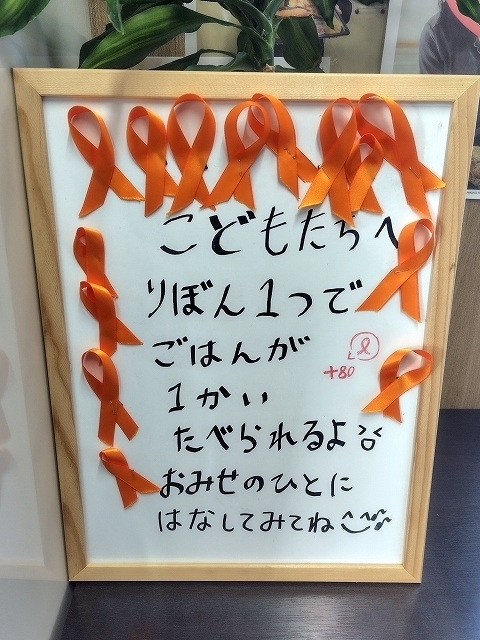 こどもたちへ
りぼん1つで
ごはんが
+80
1かい
たべられるよ
おみせのひとに
はなしてみてね